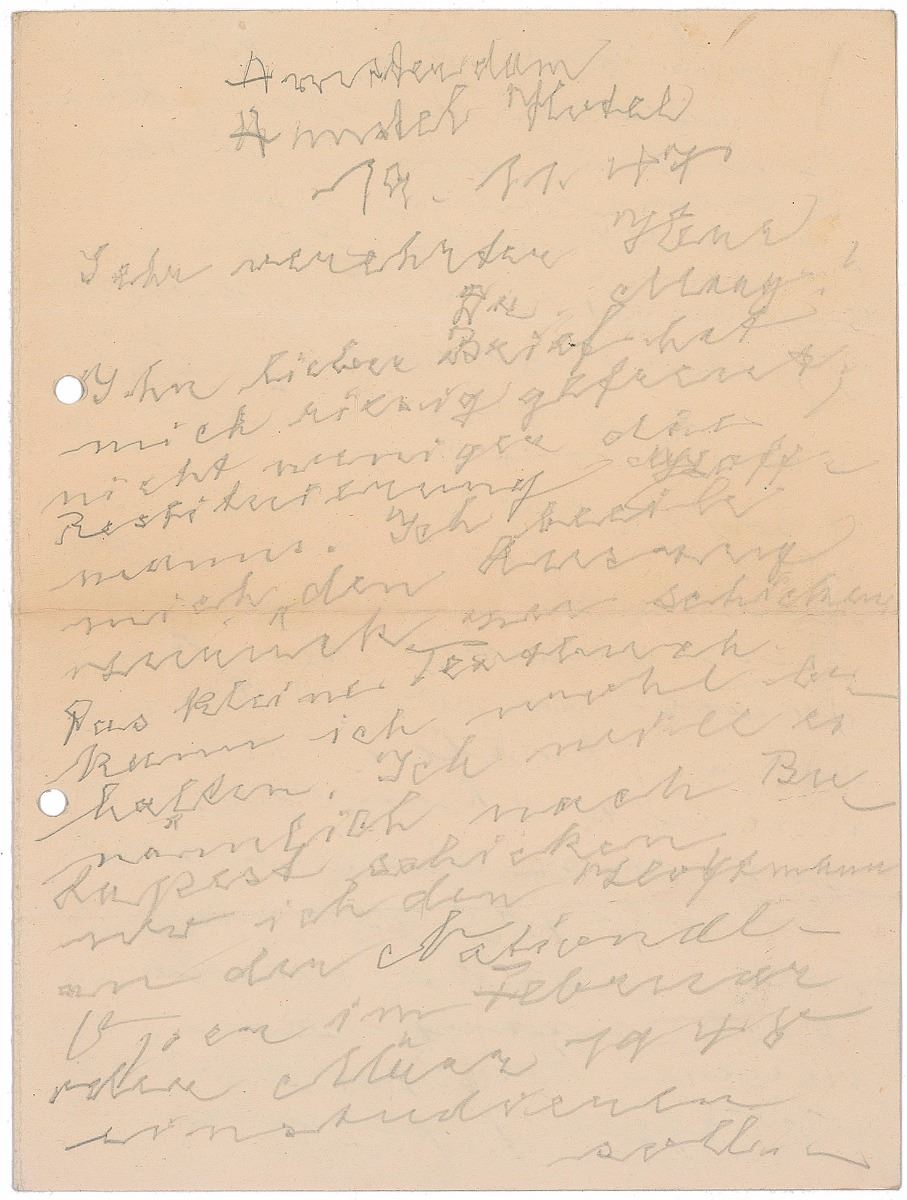 Amsterdam
Amstel Hotel
19. 11. 47
Sehr verehrter Herr
Dr. Maag!
Ihr lieber Brief hat
mich riesig gefreut,
nicht weniger die
Restituierung Hoff-
manns. Ich beeile
mich den Auszug
zurück zu schicken
Das kleine Textbuch
kann ich wohl be-
halten. Ich will es
nämlich nach Bu-
dapest schicken
wo ich den Hoffmann
an der National-
Oper im Februar
oder März 1948
einstudieren
soll.